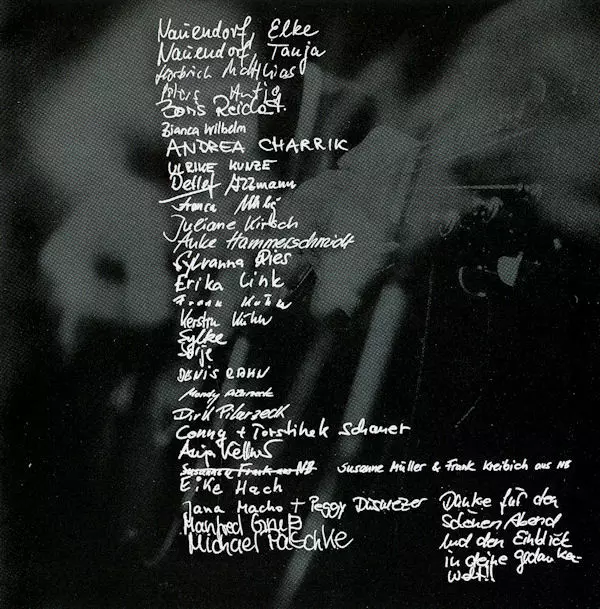 Nauendorf, Elke
Nauendorf, Tanja
Matthias
Antig
Boris Reichst.
Bianca Wilhelm
ANDREA CHARRIK
ULRIKE KUNZE
Detlef Atzmann
Juliane Kirsch
Anke Hammerschmidt
Sylvanna Dies
Erika Link
Frank Kuhn
Kerstin Kühn
Sylke
Sörje
DENIS RAHN
Mandy
Dirk Pilarzeck
Conny + Torstihek Schauer
Anja
Susanne & Frank aus NB Susanne Müller & Frank Kreibich aus NB
Eike Hach
Jana Macho + Peggy
Manfred Gruß
Michael Paschke
Danke für den
schönen Abend
und den Einblick
in deine gedanken-
welt!!